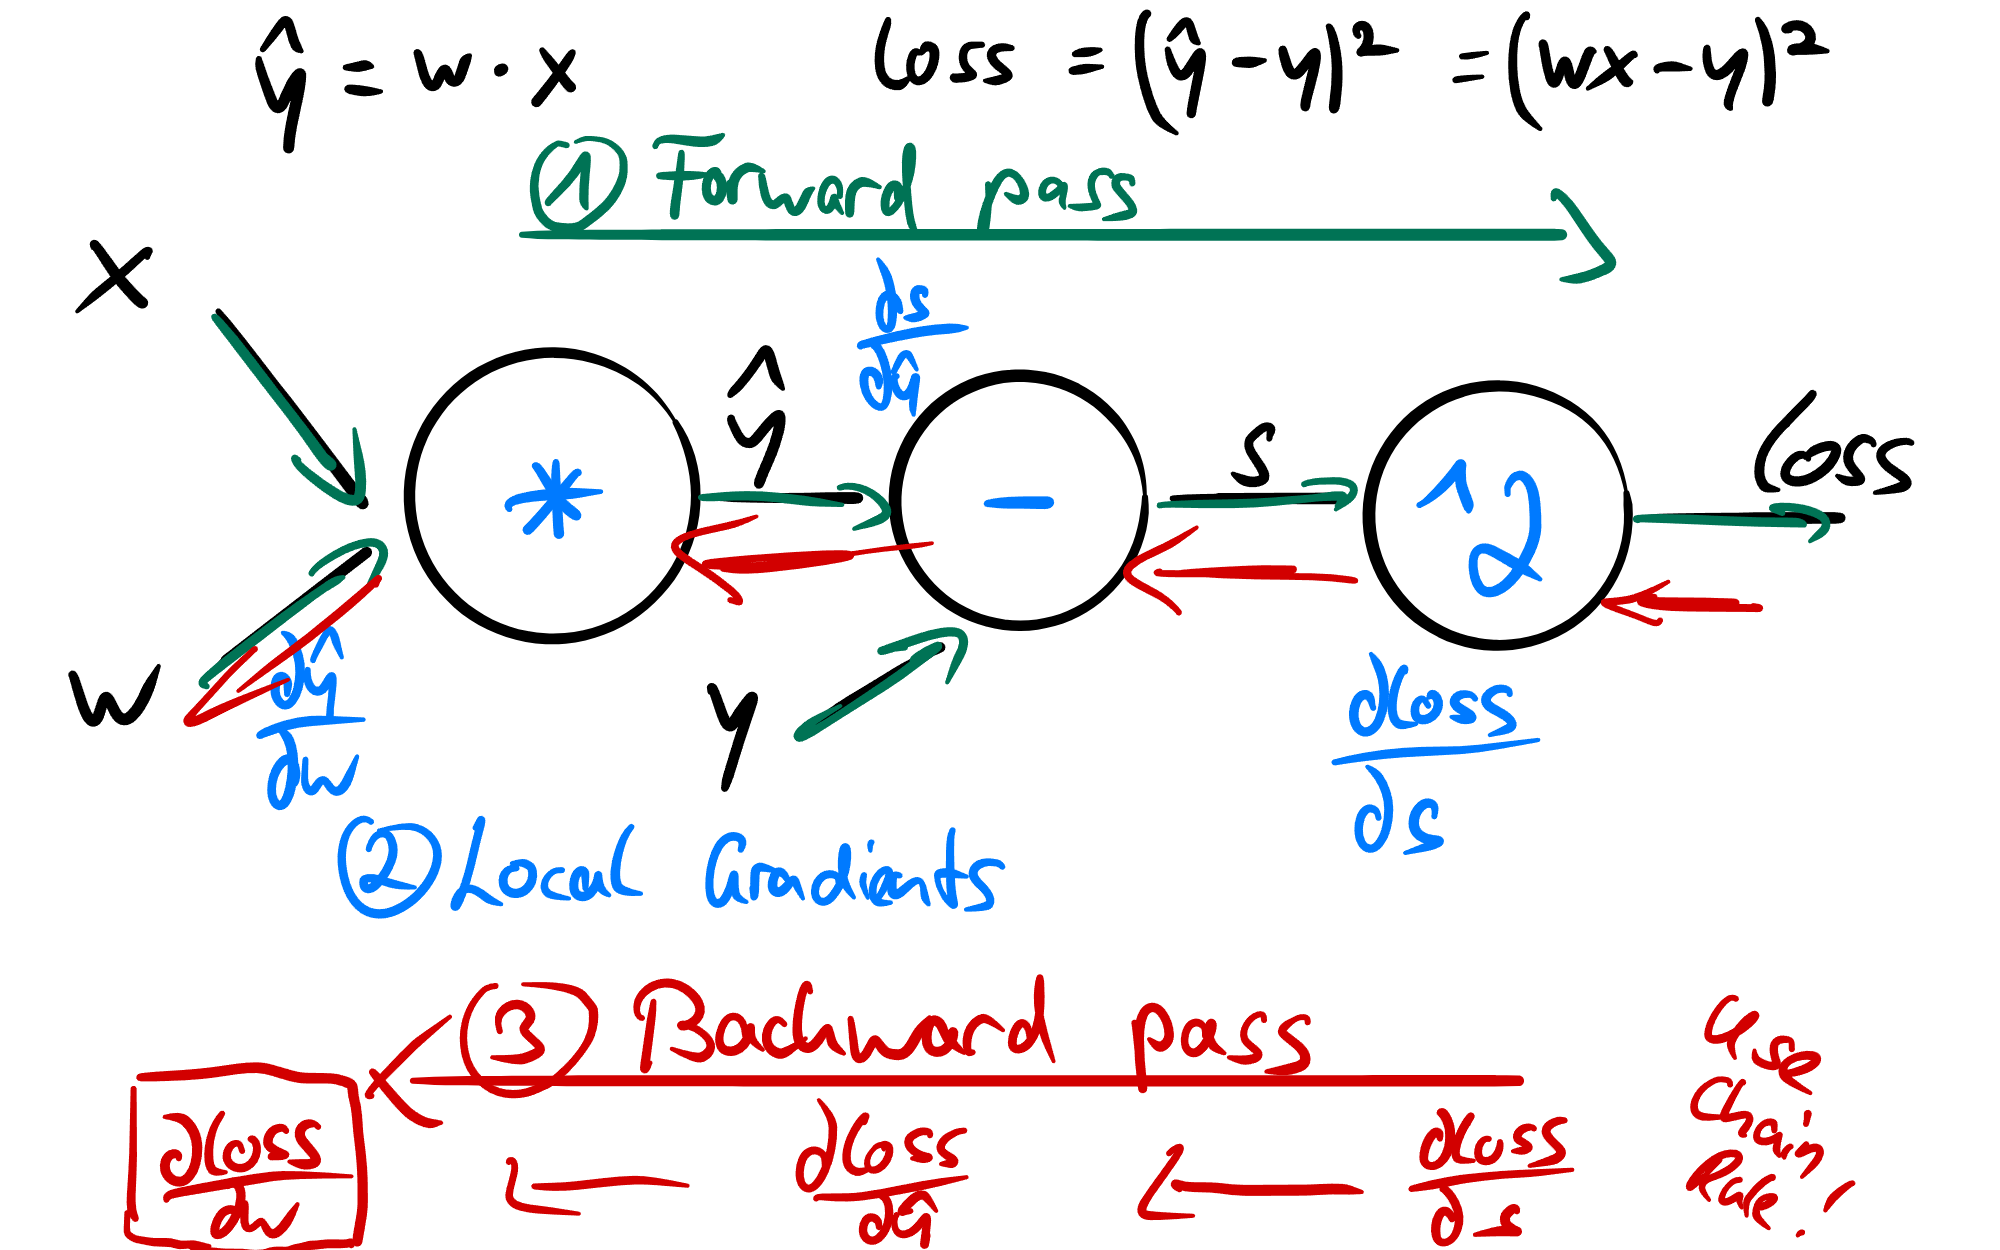 ŷ = w · x
loss = (ŷ - y)² = (wx - y)²
① Forward pass
x
ds/dŷ
ŷ
s
loss
*
-
^2
w
dŷ/dw
y
dloss/ds
② Local Gradients
③ Backward pass
dloss/dw ← dloss/dŷ ← dloss/ds
Use
Chain
Rule!